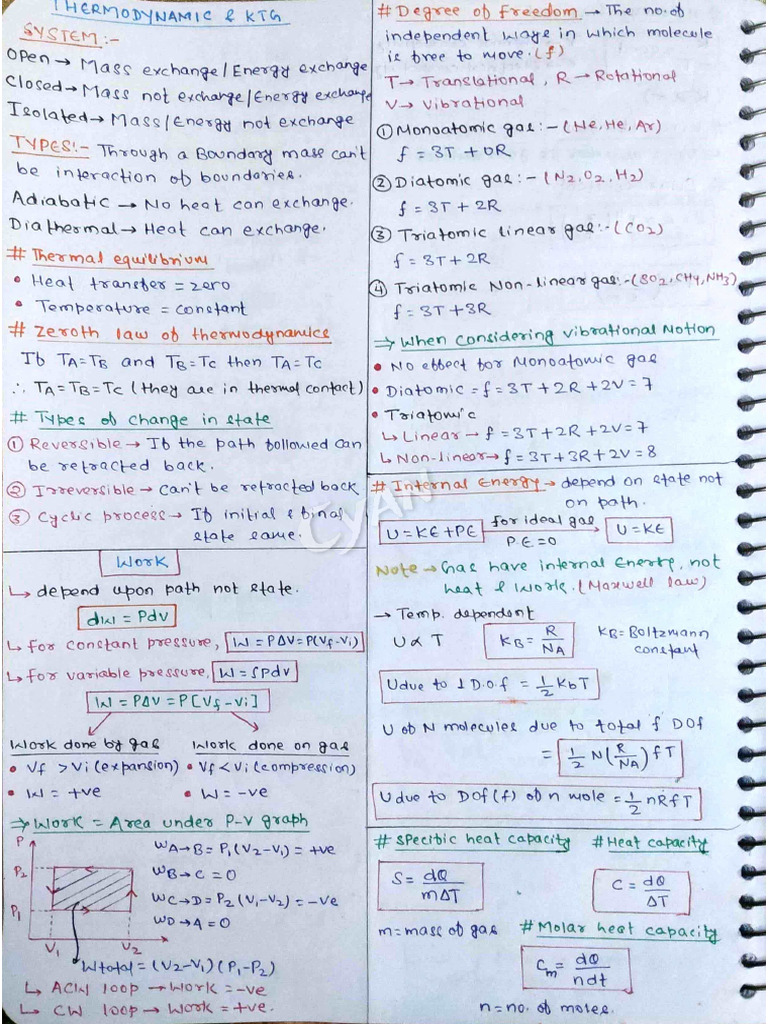 THERMODYNAMIC & KTG
SYSTEM:-
Open → Mass exchange/Energy exchange
Closed → Mass not exchange/Energy exchange
Isolated → Mass/Energy not exchange
TYPES:- Through a Boundary mass can't
be interaction of boundaries.
Adiabatic → No heat can exchange.
Diathermal → Heat can exchange.
# Thermal equilibrium
• Heat transfer = zero
• Temperature = constant
# Zeroth law of thermodynamics
If TA=TB and TB=TC then TA=TC
∴ TA=TB=TC (they are in thermal contact)
# Types of change in state
① Reversible → If the path followed can
be retracted back.
② Irreversible → can't be retracted back
③ Cyclic process → If initial & final
state same.
Work
↳ depend upon path not state.
dW = Pdv
↳ for constant pressure, W = PΔV = P(Vf-Vi)
↳ for variable pressure, W = ∫Pdv
W = PΔV = P[Vf-Vi]
Work done by gas
• Vf > Vi (expansion)
• W = +ve
Work done on gas
• Vf < Vi (compression)
• W = -ve
⇒ Work = Area under P-V graph
P
P2
P1
V1
V2
V
WA→B = P1(V2-V1) = +ve
WB→C = 0
WC→D = P2(V1-V2) = -ve
WD→A = 0
Wtotal = (V2-V1)(P1-P2)
↳ ACW loop → Work = -ve
↳ CW loop → Work = +ve.
# Degree of freedom → The no. of
independent ways in which molecule
is free to move. (f)
T → Translational, R → Rotational
V → Vibrational
① Monoatomic gas:- (Ne, He, Ar)
f = 3T + 0R
② Diatomic gas:- (N2, O2, H2)
f = 3T + 2R
③ Triatomic linear gas:- (CO2)
f = 3T + 2R
④ Triatomic Non-linear gas:- (SO2, CH4, NH3)
f = 3T + 3R
⇒ When considering Vibrational Motion
• No effect for Monoatomic gas
• Diatomic = f = 3T + 2R + 2V = 7
• Triatomic
↳ Linear → f = 3T + 2R + 2V = 7
↳ Non-linear → f = 3T + 3R + 2V = 8
# Internal Energy → depend on state not
on path.
U = KE + PE for ideal gas P.E = 0 U = KE
Note → Gas have internal Energy, not
heat & Work. (Maxwell law)
→ Temp. dependent
U ∝ T KB = R/NA KB = Boltzmann
constant
U due to 1 D.O.f = 1/2 KbT
U of N molecules due to total f DOf
= 1/2 N(R/NA) fT
U due to DOf(f) of n mole = 1/2 nRfT
# Specific heat capacity
S = dQ/mΔT
m = mass of gas
# Heat capacity
C = dQ/ΔT
# Molar heat capacity
Cm = dQ/ndt
n = no. of moles.
CYAN